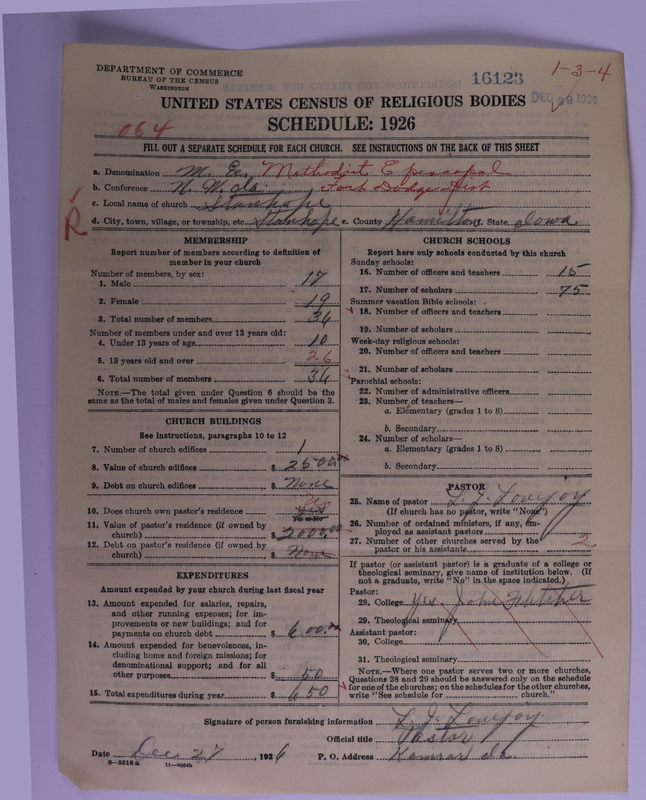 DEPARTMENT OF COMMERCE
BUREAU OF THE CENSUS
WASHINGTON
16123
1-3-4
DEC 29 1926
UNITED STATES CENSUS OF RELIGIOUS BODIES
SCHEDULE: 1926
064
FILL OUT A SEPARATE SCHEDULE FOR EACH CHURCH. SEE INSTRUCTIONS ON THE BACK OF THIS SHEET
a. Denomination M. E. Methodist Episcopal
b. Conference N. W. Ia. Fort Dodge Dist
c. Local name of church Stanhope
d. City, town, village, or township, etc Stanhope e. County Hamilton f. State Iowa
R
MEMBERSHIP
Report number of members according to definition of
member in your church
Number of members, by sex:
1. Male 17
2. Female 19
3. Total number of members 36
Number of members under and over 13 years old:
4. Under 13 years of age 10
5. 13 years old and over 26
6. Total number of members 36
NOTE.—The total given under Question 6 should be
same as the total of males and females given under Question 3.
CHURCH BUILDINGS
See instructions, paragraphs 10 to 12
7. Number of church edifices 1
8. Value of church edifices $ 2500.00
9. Debt on church edifices $ None
10. Does church own pastor's residence Yes
Yes or No
11. Value of pastor's residence (if owned by
church) $ 2000.00
12. Debt on pastor's residence (if owned by
church) $ None
EXPENDITURES
Amount expended by your church during last fiscal year
13. Amount expended for salaries, repairs,
and other running expenses; for im-
provements or new buildings; and for
payments on church debt $ 600.00
14. Amount expended for benevolences, in-
cluding home and foreign missions; for
denominational support; and for all
other purposes $ 50
15. Total expenditures during year $ 650
CHURCH SCHOOLS
Report here only schools conducted by this church
Sunday schools:
16. Number of officers and teachers 15
17. Number of scholars 75
Summer vacation Bible schools:
18. Number of officers and teachers
19. Number of scholars
Week-day religious schools:
20. Number of officers and teachers
21. Number of scholars
Parochial schools:
22. Number of administrative officers
23. Number of teachers—
a. Elementary (grades 1 to 8)
b. Secondary
24. Number of scholars—
a. Elementary (grades 1 to 8)
b. Secondary
PASTOR
25. Name of pastor L. J. Lovejoy
(If church has no pastor, write "None")
26. Number of ordained ministers, if any, em-
ployed as assistant pastors
27. Number of other churches served by the
pastor or his assistants 2
If pastor (or assistant pastor) is a graduate of a college or
theological seminary, give name of institution below. (If
not a graduate, write "No" in the space indicated.)
Pastor:
28. College Yes. John Fletcher
29. Theological seminary
Assistant pastor:
30. College
31. Theological seminary
NOTE.—Where one pastor serves two or more churches,
Questions 28 and 29 should be answered only on the schedule
for one of the churches; on the schedules for the other churches,
write "See schedule for church."
Signature of person furnishing information L. J. Lovejoy
Official title Pastor
Date Dec 27, 1926 P. O. Address Kamrar Ia.
8—5518a 11—9034b